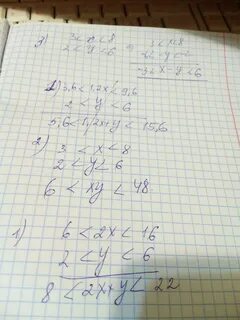 3) 3<x<8
2<y<6
3<x<8
-3<x-y<6
4) 3,6<1,2x<9,6
2<y<6
5,6<1,2x+y<15,6
2) 3<x<8
2<y<6
6<xy<48
1) 6<2x<16
2<y<6
8<2x+y<22